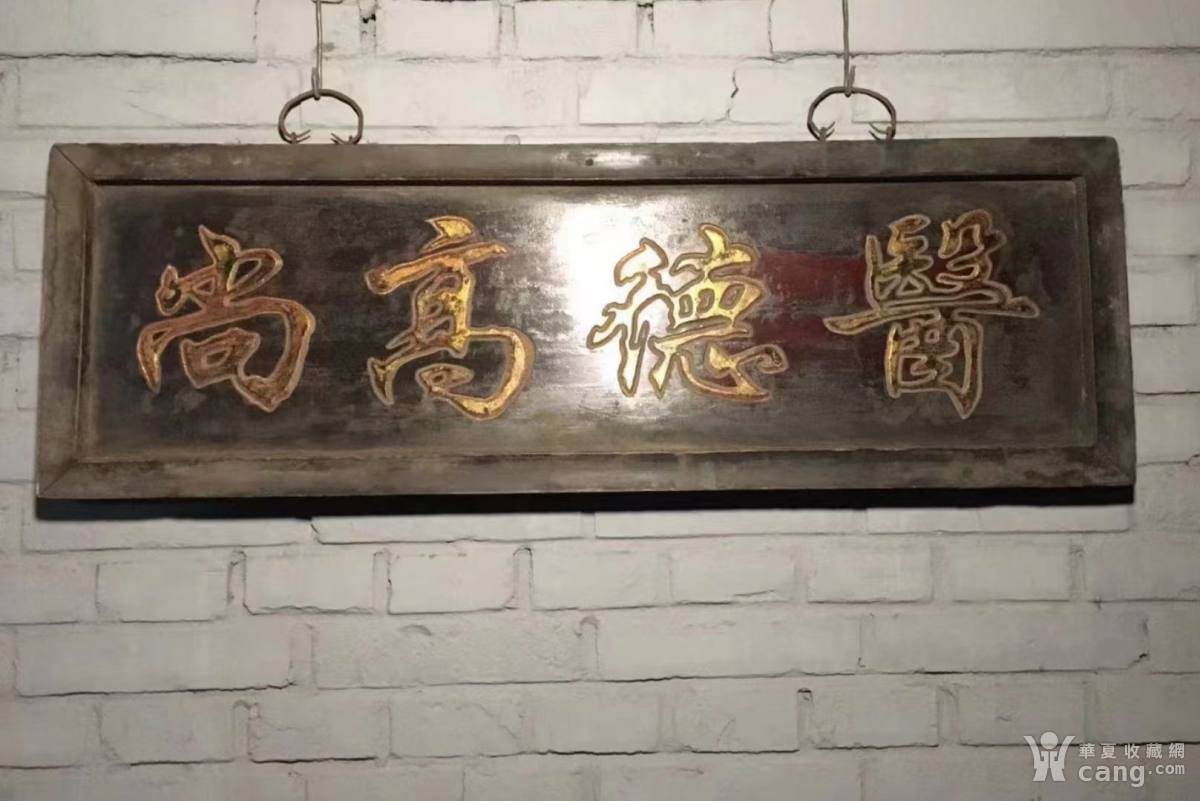 醫德高尚
華夏收藏網
cang.com